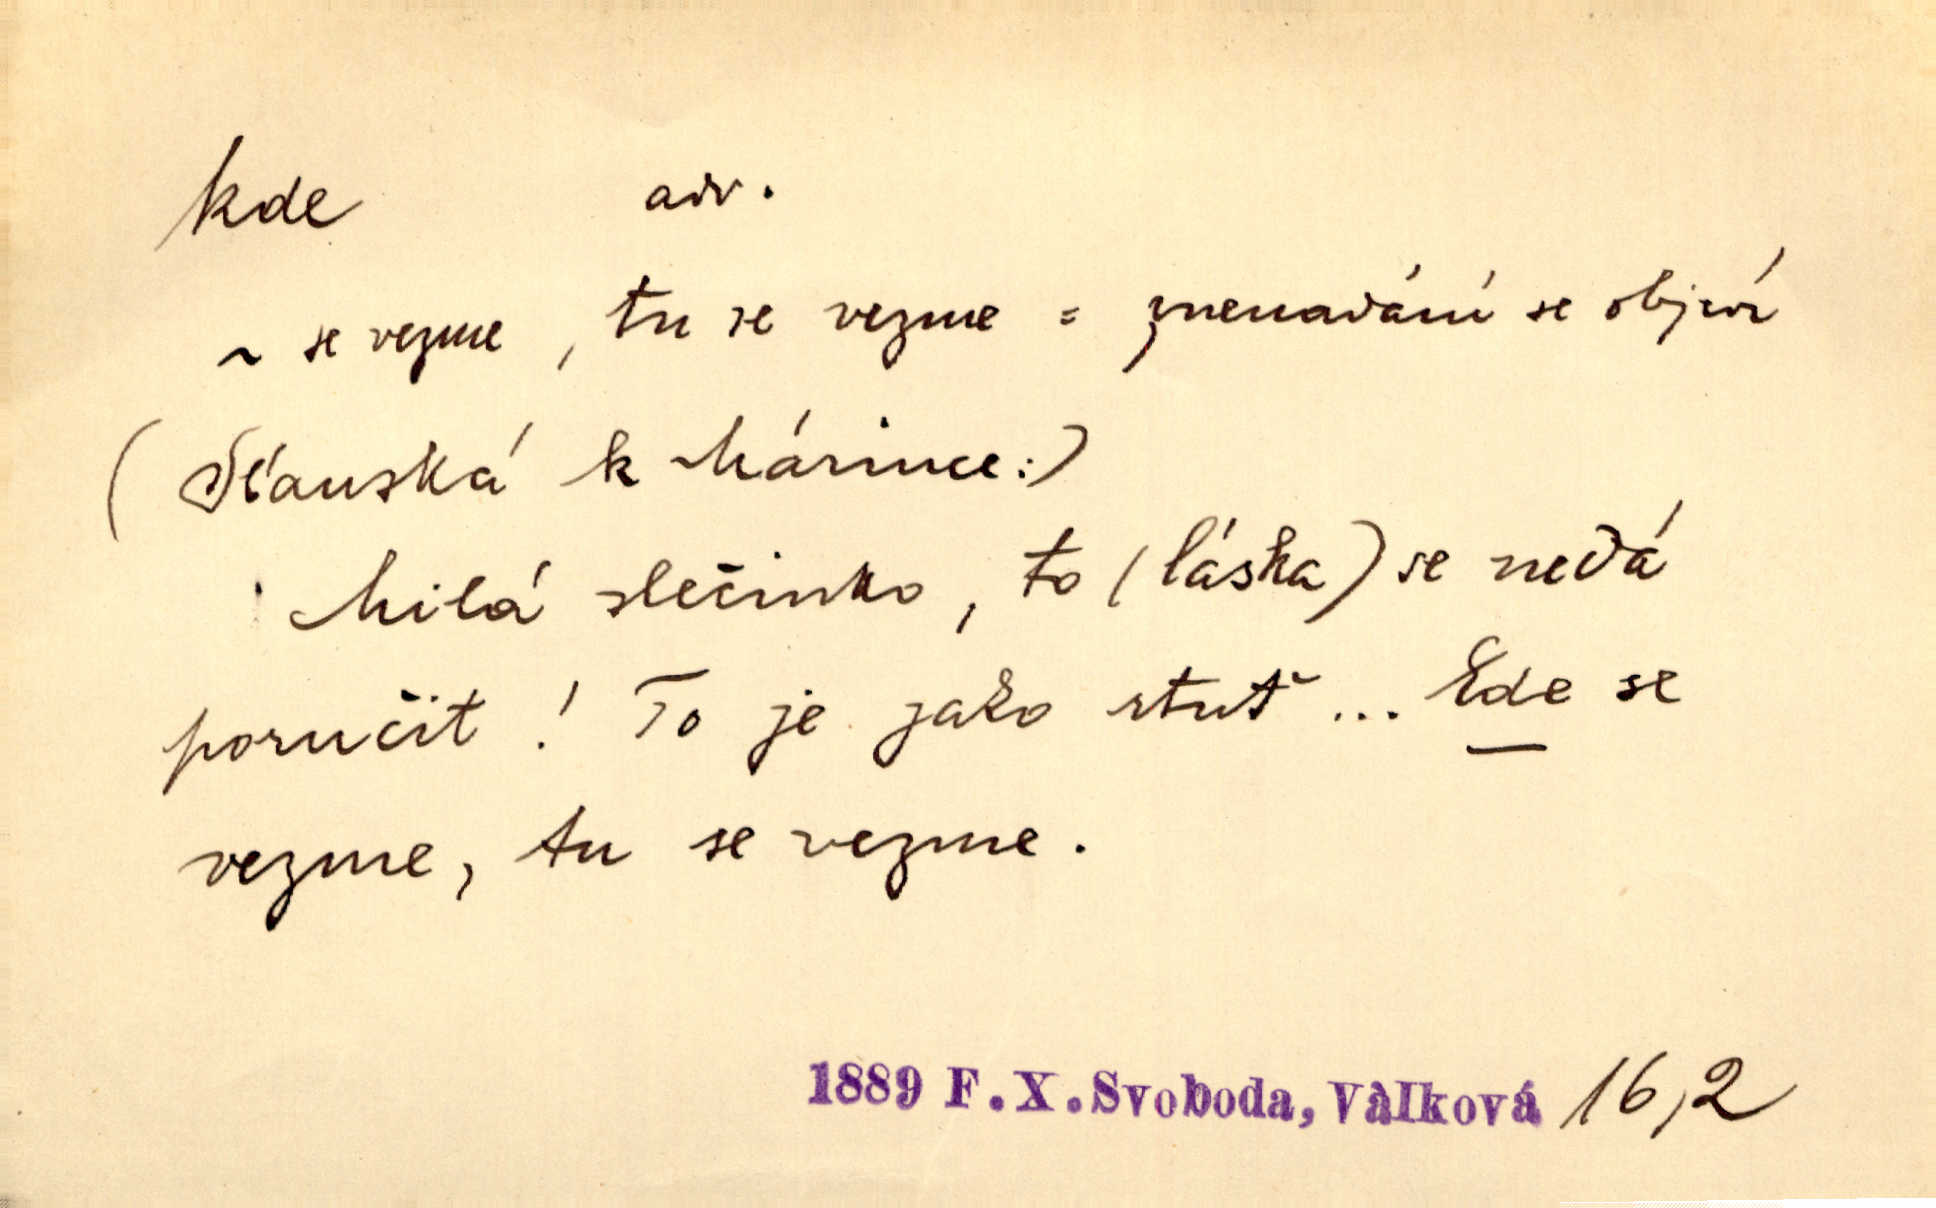 kde adv.
~ se vezme, tu se vezme = znenadání se objeví
(Slánská k Márince:)
Milá slečinko, to (láska) se nedá
poručit! To je jako rtuť... Kde se
vezme, tu se vezme.
1889 F.X.Svoboda, Válková 16,2